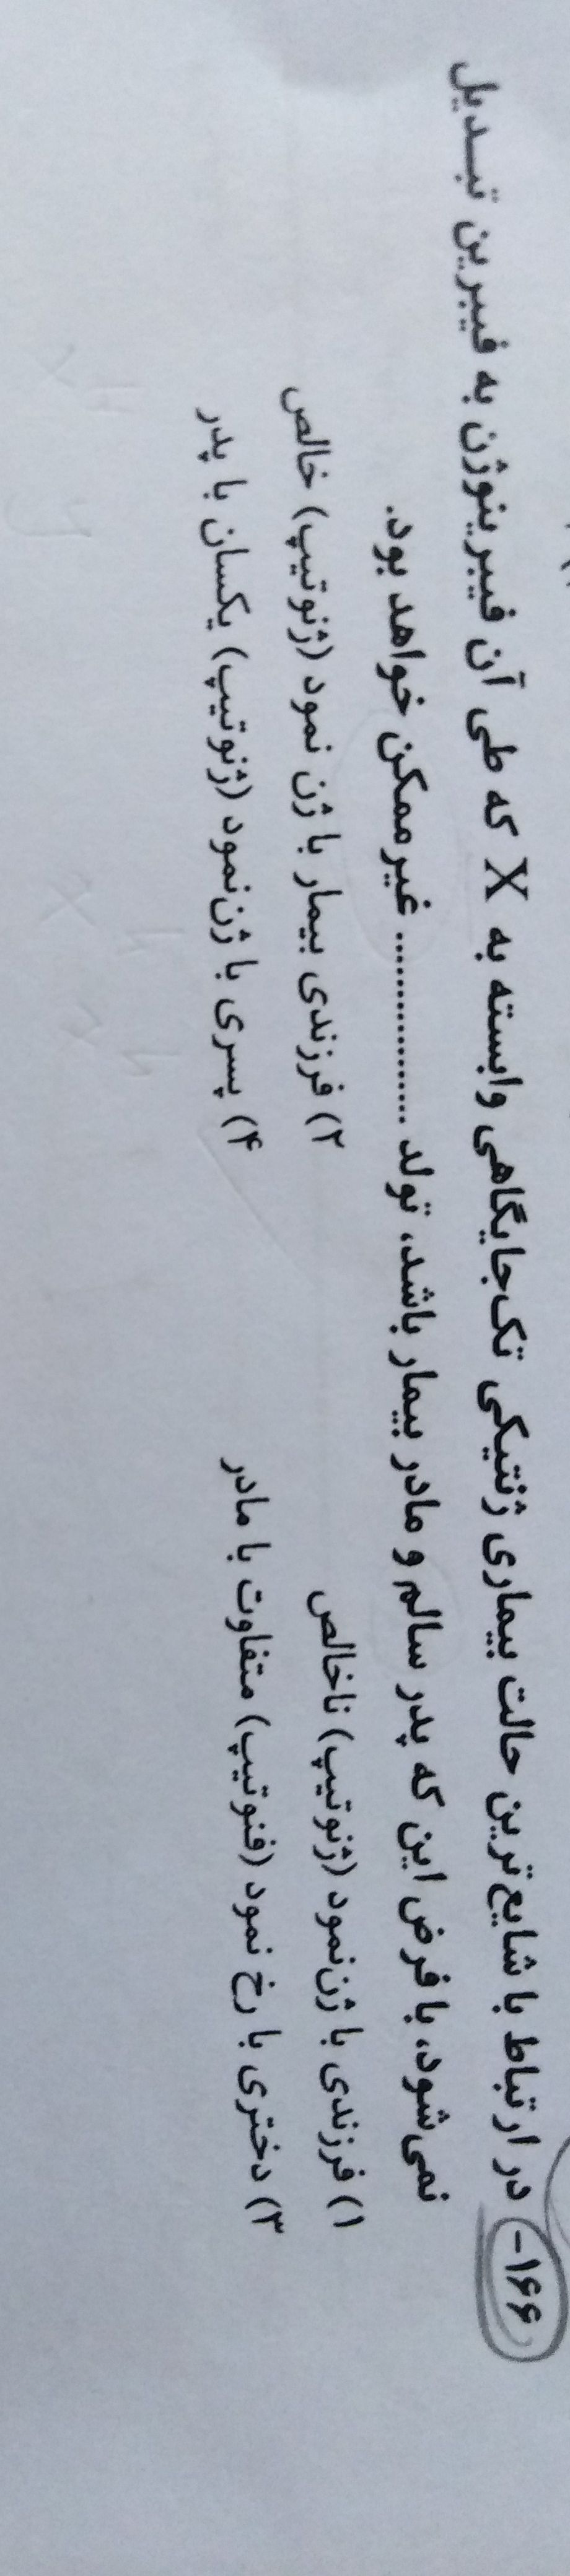 ۱۶۶- در ارتباط با شایع‌ترین حالت بیماری ژنتیکی تک‌جایگاهی وابسته به X که طی آن فیبرینوژن به فیبرین تبدیل
نمی‌شود، با فرض این که پدر سالم و مادر بیمار باشد، تولد ................ غیرممکن خواهد بود.
۱) فرزندی با ژن‌نمود (ژنوتیپ) ناخالص ۲) فرزندی بیمار با ژن نمود (ژنوتیپ) خالص
۳) دختری با رخ نمود (فنوتیپ) متفاوت با مادر ۴) پسری با ژن‌نمود (ژنوتیپ) یکسان با پدر